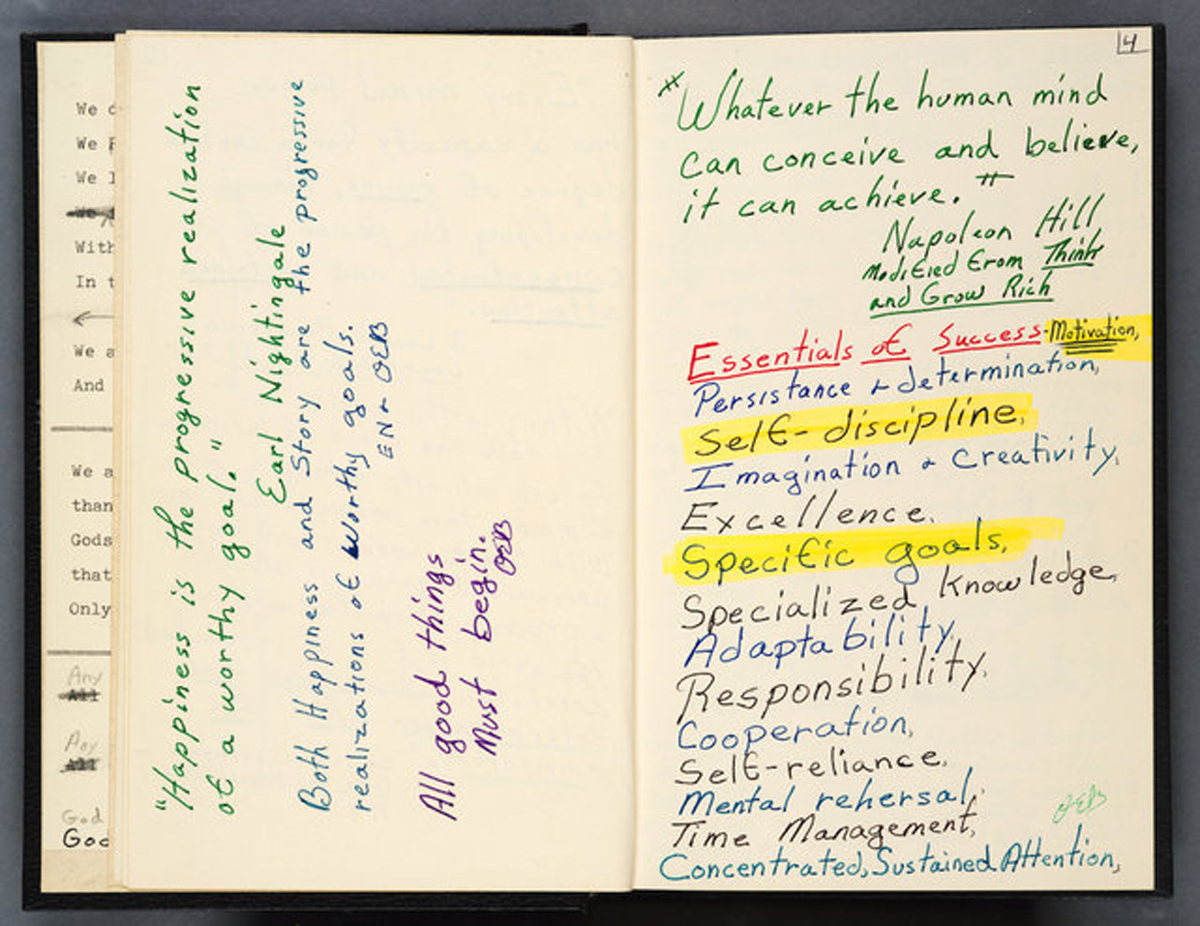 We
We
We
With
In t
We a
And
We a
than
Gods
that
Only
Any
All
Any
All
God
God
"Happiness is the progressive realization
of a worthy goal."
Earl Nightingale
Both Happiness and Story are the progressive
realizations of worthy goals.
EN & OEB
All good things
Must begin.
OEB
4
"Whatever the human mind
can conceive and believe,
it can achieve."
Napoleon Hill
Modified From Think
and Grow Rich
Essentials of Success-Motivation,
Persistance & determination,
Self-discipline,
Imagination & Creativity,
Excellence.
Specific goals,
Specialized Knowledge,
Adaptability,
Responsibility,
Cooperation,
Self-reliance,
Mental rehersal,
OEB
Time Management,
Concentrated, Sustained Attention,